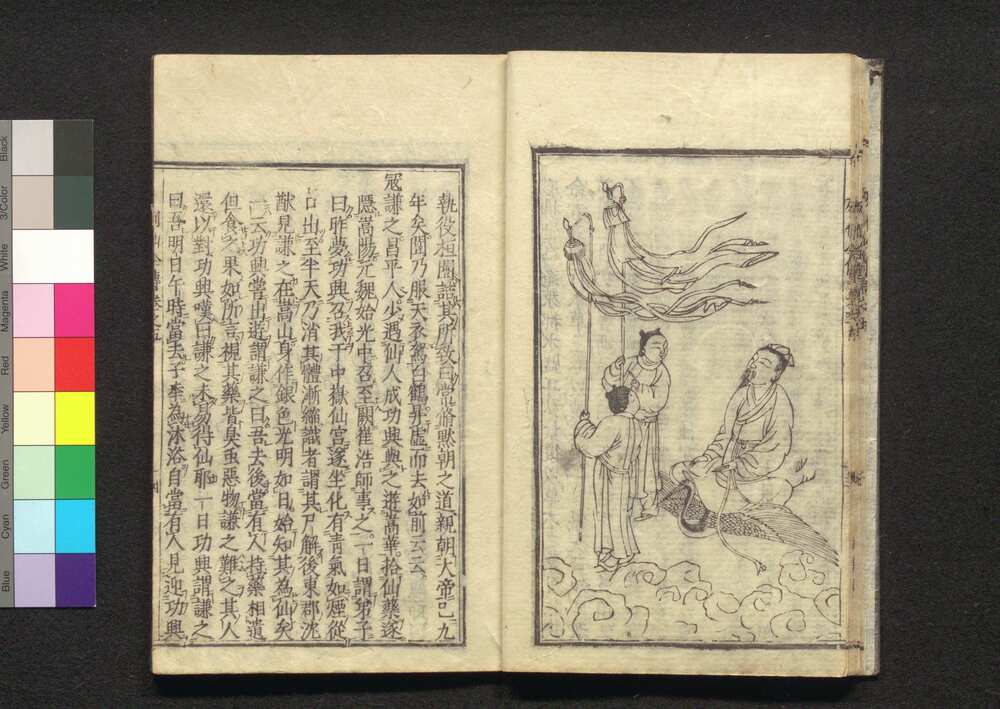 執役桓闓謂其所致曰常脩黙朝之道親朝大帝已九
年矣闓乃服天衣駕白鶴昇虚而去如前云云
冦謙之昌平人少遇仙人成功興與之遊嵩華拾仙藥遂
隱嵩陽元魏始光中召至闕崔浩師事之一日謂弟子
曰昨夢功興召我于中嶽仙宫遂坐化有青氣如煙從
口出至半天乃消其體漸縮識者謂其尸解後東郡沈
猷見謙之在嵩山身作銀色光明如日始知其為仙矣
一云功興嘗出遊謂謙之曰吾去後當有人持藥相遺
但食之果如所言視其藥皆臭虫惡物謙之難之其人
還以對功興嘆曰謙之未易得仙耶一日功興謂謙之
曰吾明日午時當去子幸為沐浴自當有人見迎功興
Blue
Cyan
Green
Yellow
Red
Magenta
White
3/Color
Black